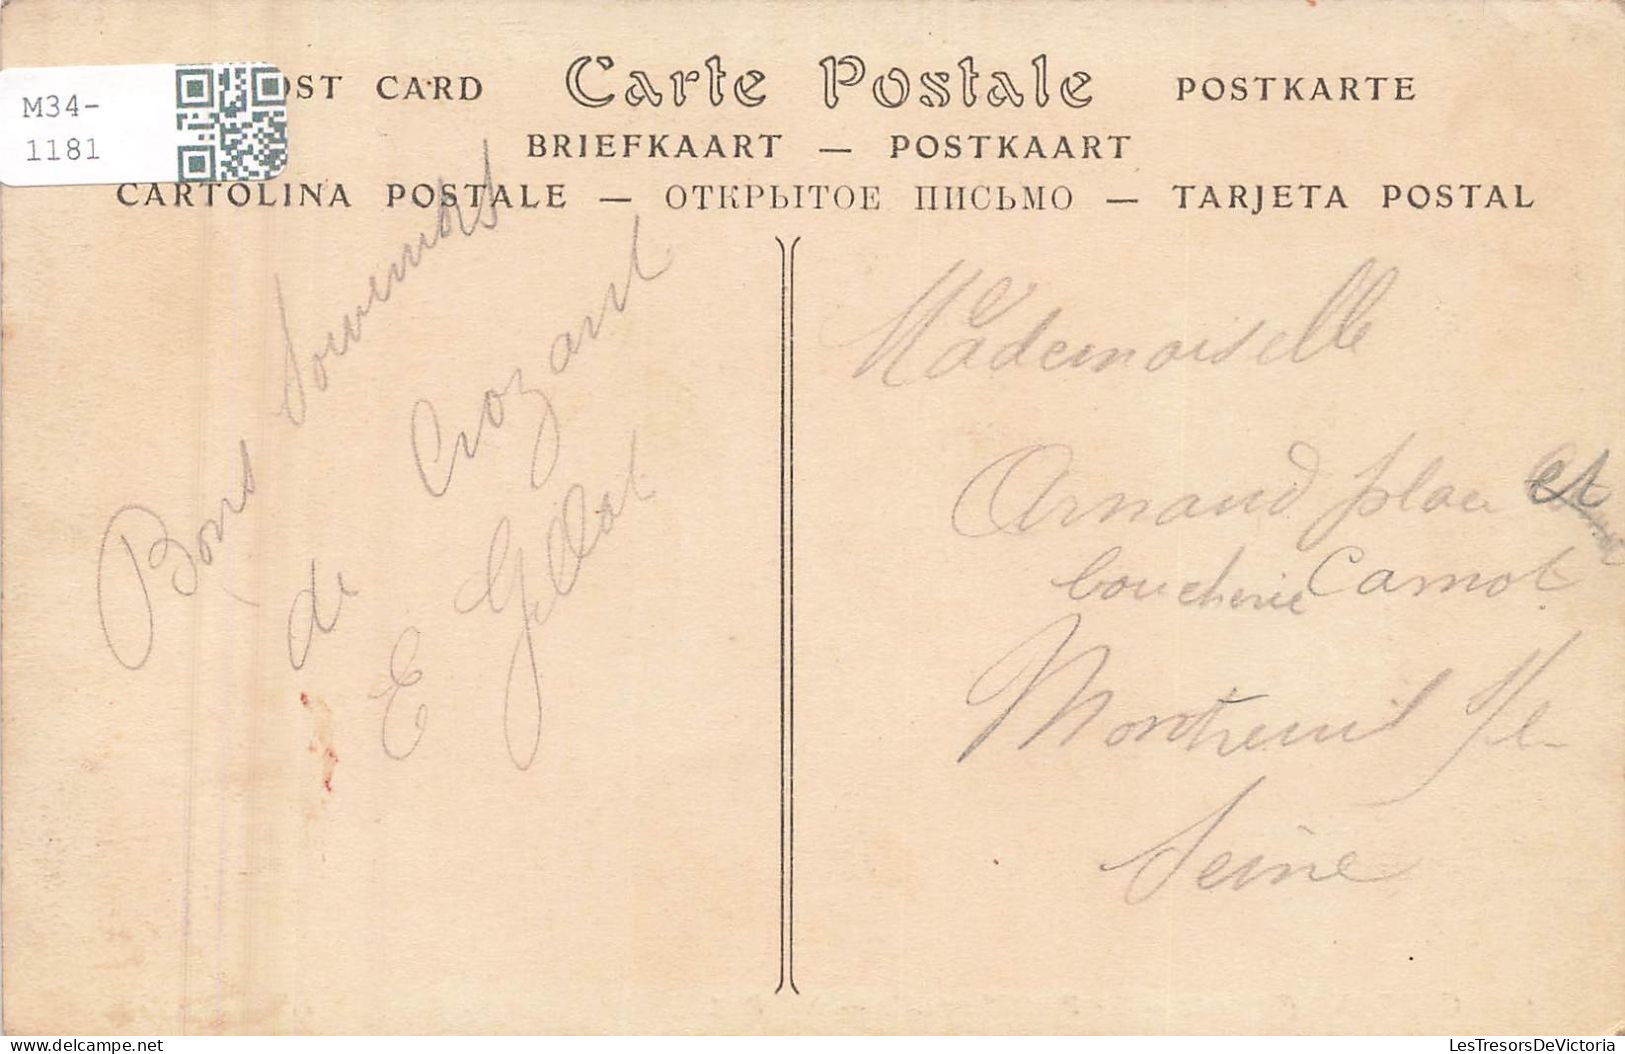 M34-
1181
OST CARD Carte Postale POSTKARTE
BRIEFKAART — POSTKAART
CARTOLINA POSTALE — ОТКРЫТОЕ ПИСЬМО — TARJETA POSTAL
Bons Souvenirs
de Crozant
E
Mademoiselle
Arnaud place
boucherie Carnot
Montreuil
Seine
delcampe.net
LesTresorsDeVictoria